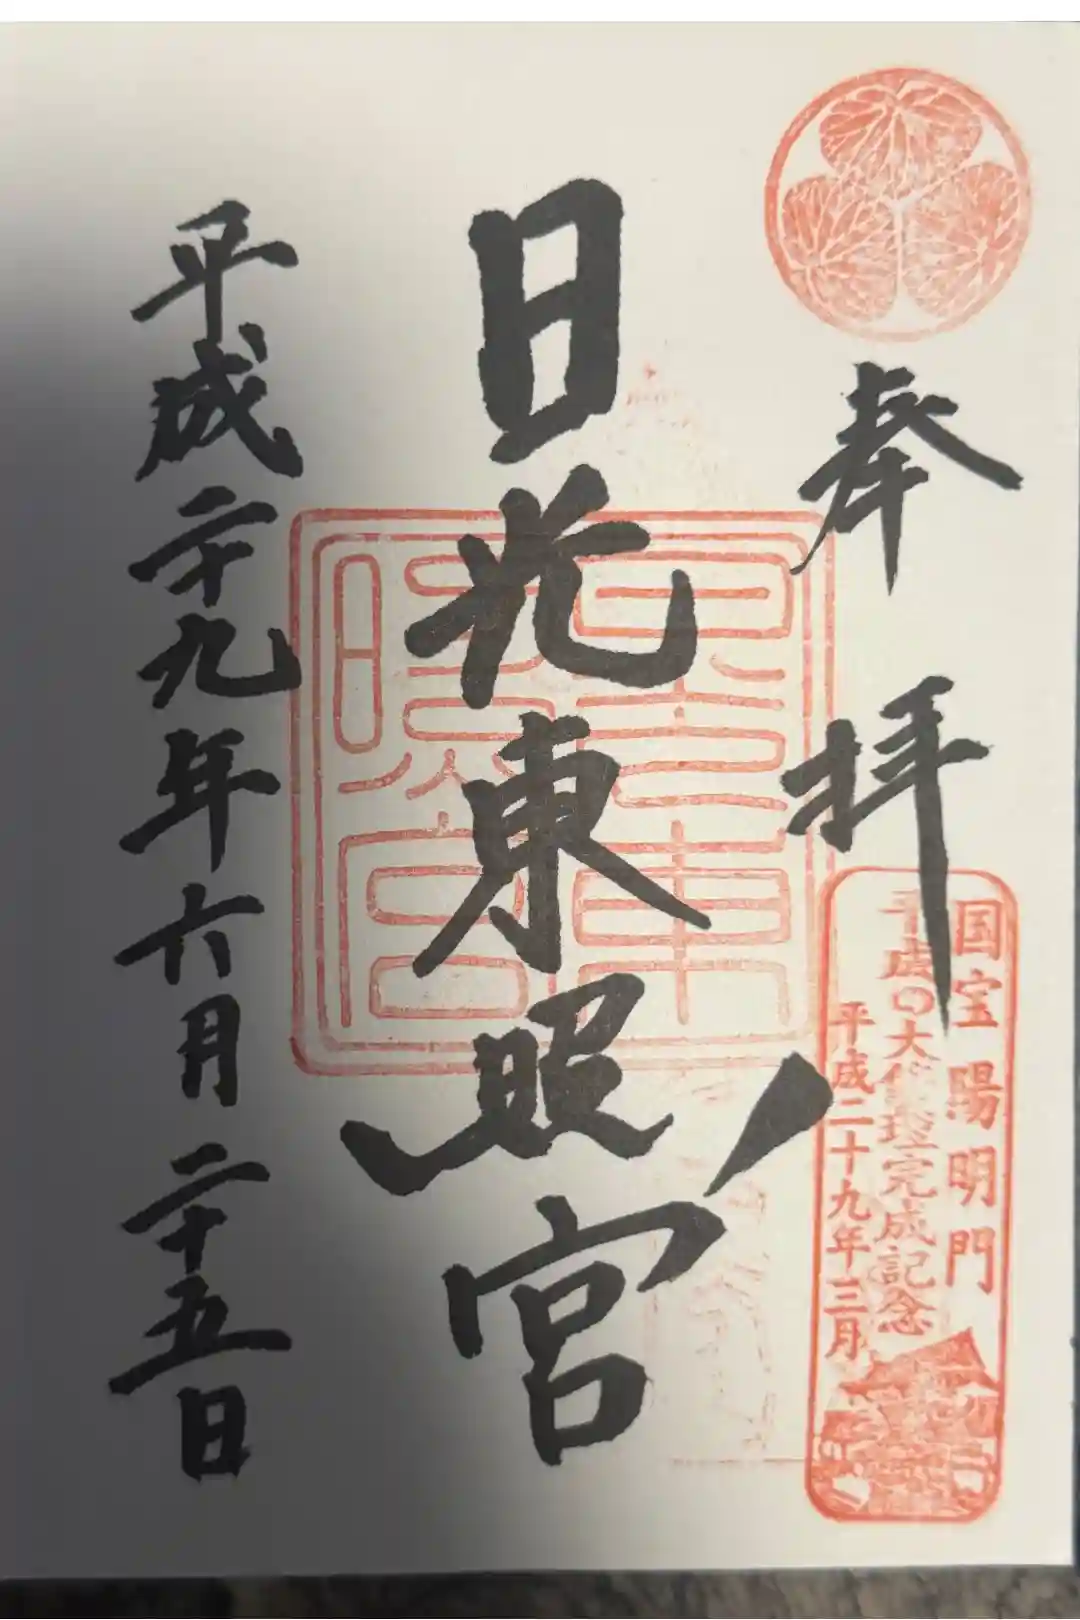 奉拝
国宝陽明門
平成の大修理完成記念
平成二十九年三月
日光東照宮
東照宮
平成二十九年六月二十五日